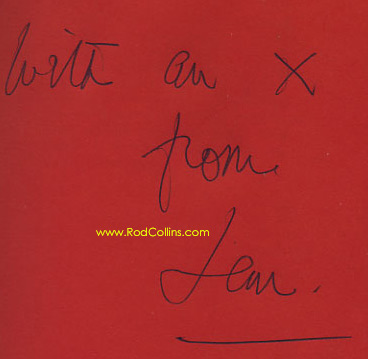 With an X
from
www.RodCollins.com
Jean.